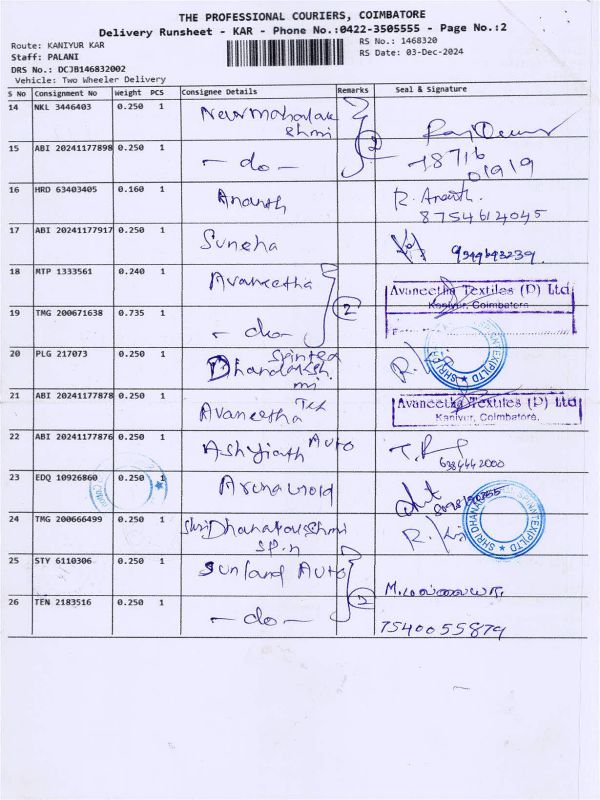 THE PROFESSIONAL COURIERS, COIMBATORE
Delivery Runsheet - KAR - Phone No.:0422-3505555 - Page No.:2
Route: KANIYUR KAR
RS No.: 1468320
Staff: PALANI
RS Date: 03-Dec-2024
DRS No.: DCJB146832002
Vehicle: Two Wheeler Delivery
S No Consignment No Weight PCS Consignee Details Remarks Seal & Signature
14 NKL 3446403 0.250 1
15 ABI 20241177898 0.250 1 - do - 2
16 HRD 63403405 0.160 1 Ananth R. Ananth.
8754612045
17 ABI 20241177917 0.250 1 Suneha
18 RTP 1333561 0.240 1 Avaneetha
Avaneetha Textiles (P) Ltd
Kaniyur, Coimbatore
19 TMG 200671638 0.735 1 - do - 2
20 PLG 217073 0.250 1
21 ABI 20241177878 0.250 1 Avaneetha Tex
Avaneetha Textiles (P) Ltd
Kaniyur, Coimbatore.
22 ABI 20241177876 0.250 1 Auto
6384442000
23 EDQ 10926860 0.250 1
24 TMG 200666499 0.250 1
25 STY 6110306 0.250 1 Sunland Auto
26 TEN 2183516 0.250 1 - do - 2
7540055879